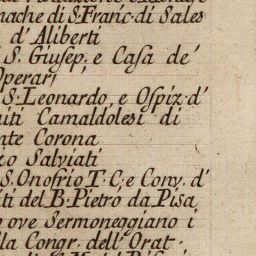 nache di S. Franc. di Sales
d'Aliberti
S. Giusep. e Casa de'
Operarj
S. Leonardo, e Ospiz. d'
iti Camaldolesi di
nte Corona
zo Salviati
S. Onofrio T. C. e Conv. d'
ti del B. Pietro da Pisa
o ove Sermoneggiano i
lla Congr. dell' Orat.